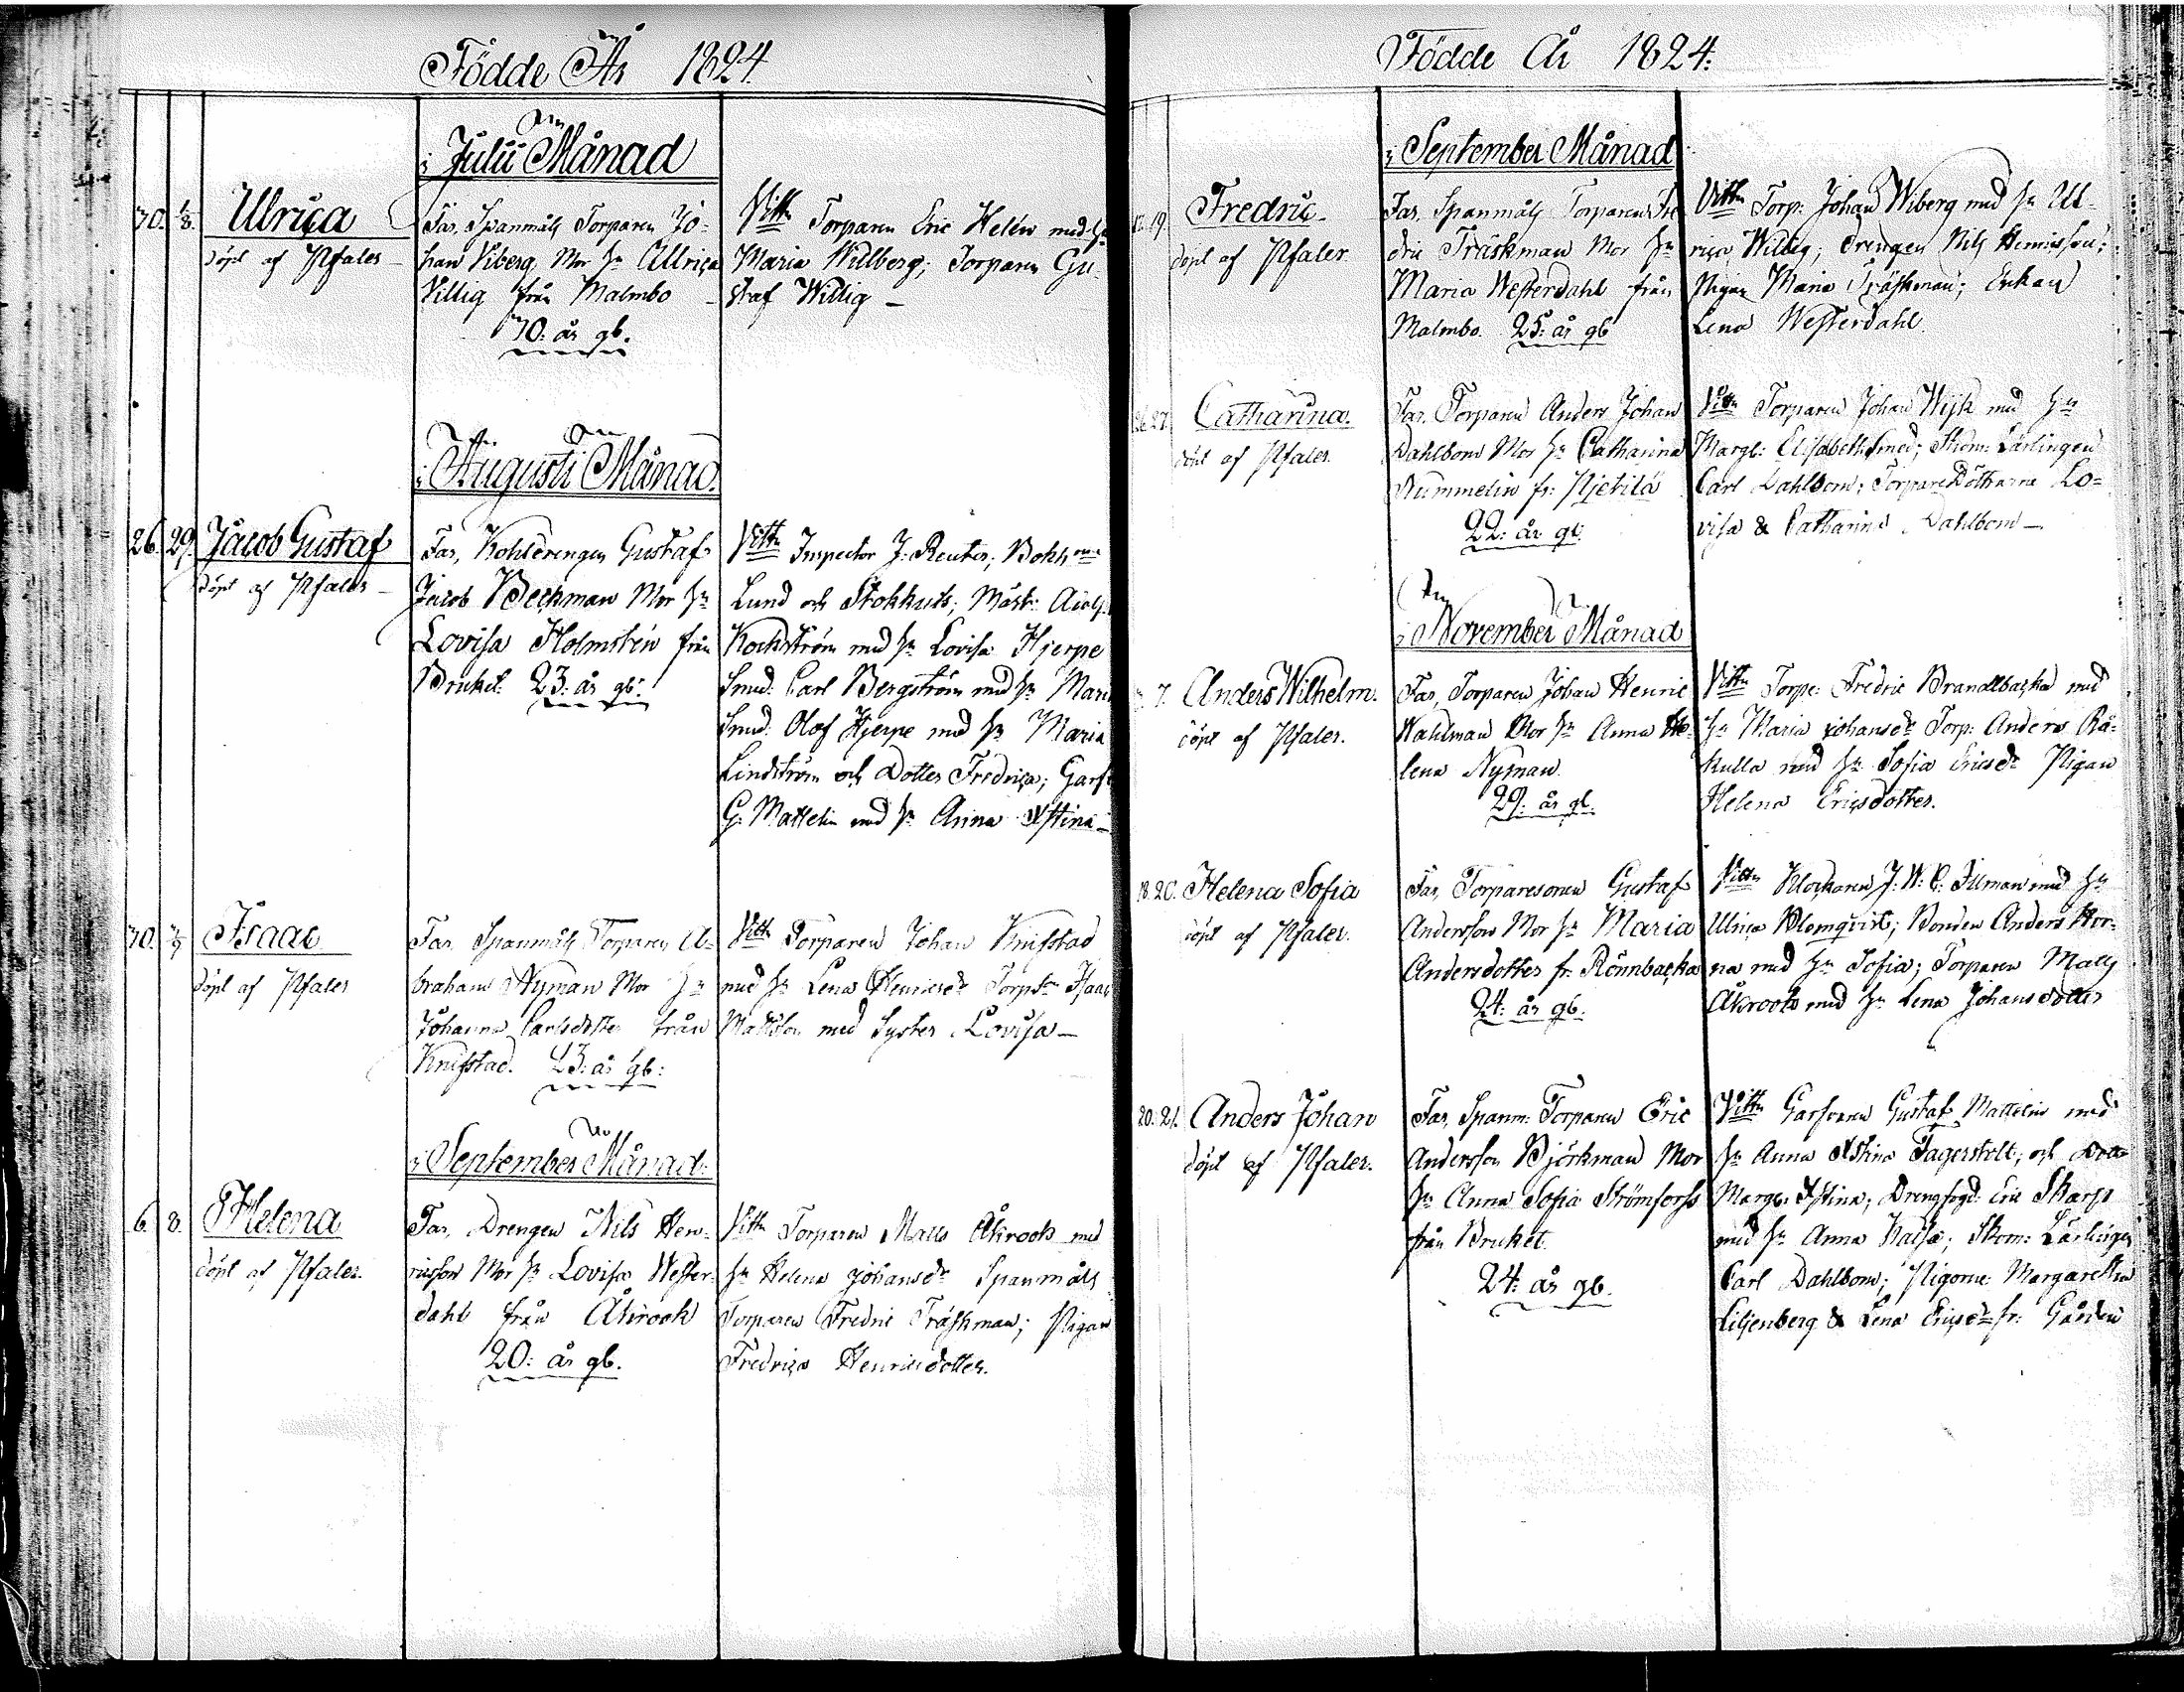 Födde År 1824.
i Julii Månad
30. 1/8. Ulrica
döpt af Pfaler
Far, Spanmåls Torparen Jo-
han Viberg, Mor Hu Ullrica
Villig från Malmbo
30: år gb.
Vittn Torparen Eric Helén med Hu
Maria Willberg; Torparen Gu
staf Willig
i Augusti Månad.
26. 29. Jacob Gustaf
döpt af Pfaler
Far, Kohldrengen Gustaf
Jacob Beckman Mor Hu
Lovisa Holmstén från
Bruket. 23: år gb.
Vittn Inspector J: Reuter; Bokh
Lund och Stokhuts; Mäst:
Kochström med Hu Lovisa Hjerpe
Smed: Carl Bergström med Hu Mari
Smed: Olof Hjerpe med Hu Maria
Lindström och Dotter Fredrica; Garf
G: Mattelin med Hu Anna Xstina
30. 7/9 Isaac
döpt af Pfaler
Far, Spanmåls Torparen A-
braham Nyman Mor Hu
Johanna Carlsdotter från
Knifstad. 43: år gb:
Vittn Torparen Johan Knifstad
med Hu Lena Henricsdr Torpsn Isaac
Mattsson med Syster Lovisa
i September Månad.
6. 8. Helena
döpt af Pfaler.
Far, Drengen Nils Hen-
ricsson Mor Hu Lovisa Wester-
dahl från Åkrook
20: år gb.
Vittn Torparen Matts Åkrook med
Hu Helena Johansdr Spanmåls
Torparen Fredric Träskman; Pigan
Fredrica Henricsdotter.
Födde År 1824.
i September Månad
19. Fredric
döpt af Pfaler
Far, Spanmåls Torparen Fre
dric Träskman Mor Hu
Maria Westerdahl från
Malmbo. 25: år gb
Vittn Torp: Johan Wiberg med Hu Ul-
rica Willig; Drengen Nils Henricsson;
Pigan Maria Träskman; Enkan
Lena Westerdahl.
27. Catharina.
döpt af Pfaler.
Far, Torparen Anders Johan
Dahlbom Mor Hu Catharina
Rummelin fr: Pjetilä
22: år gb.
Vittn Torparen Johan Wijk med Hu
Margt: Elisabeth Smed; Skom: Lärlingen
Carl Dahlbom; TorpareDöttrarne Lo-
visa & Catharina Dahlbom
i November Månad
7. Anders Wilhelm.
döpt af Pfaler.
Far, Torparen Johan Henric
Wahlman Mor Hu Anna He-
lena Nyman.
29: år gb.
Vittn Torp: Fredric Brandtbacka med
Hu Maria Johansdr Torp: Anders Rå-
kulla med Hu Sofia Ericsdr Pigan
Helena Ericsdotter.
18. 20. Helena Sofia
döpt af Pfaler.
Far, Torparesonen Gustaf
Andersson Mor Hu Maria
Andersdotter fr: Rönnbacka
24: år gb.
Vittn Klockaren J: W: C: Illman med Hu
Ulrica Blomqvist; Bonden Anders Hor-
na med Hu Sofia; Torparen Matts
Åkrook med Hu Lena Johansdotter
20. 21. Anders Johan
döpt af Pfaler.
Far, Spanm: Torparen Eric
Andersson Björkman Mor
Hu Anna Sofia Strömfors
från Bruket.
24: år gb.
Vittn Garfvaren Gustaf Mattelin med
Hu Anna Xstina Fagerstedt; och
Margt: Xstina; Drengfogd: Eric Skarp
med Hu Anna Kaisa; Skom: Lärlingen
Carl Dahlbom; Pigorne Margaretha
Liljenberg & Lena Ericsdr fr: Gården